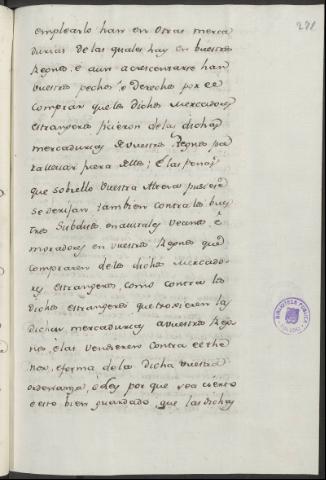 271
emplearlo han en otras merca
durias de las quales hay en buestros
Regnos, e aun acrescentarse han
vuestros pechos e derechos por el
comprar que los dichos Mercadores
estrangeros ficieren de las dichas
mercadurias de vuestros Regnos pa
ra llevar fuera dellos; E las penas
que sobrello Vuestra Alteza pusiere
se dirijan tambien contra los bues
tros Subditos, e naturales vecinos, e
moradores en vuestros Regnos que
compraren de los dichos Mercado
res estrangeros, como contra los
dichos estrangeros que troxieren las
dichas mercadurias a vuestros Reg
nos, e las vendieren contra el the
nor, e forma de la dicha vuestra
ordenanza, o Ley por que sea cierto
e esto bien guardado, que los dichos
BIBLIOTECA PUBLICA
TOLEDO